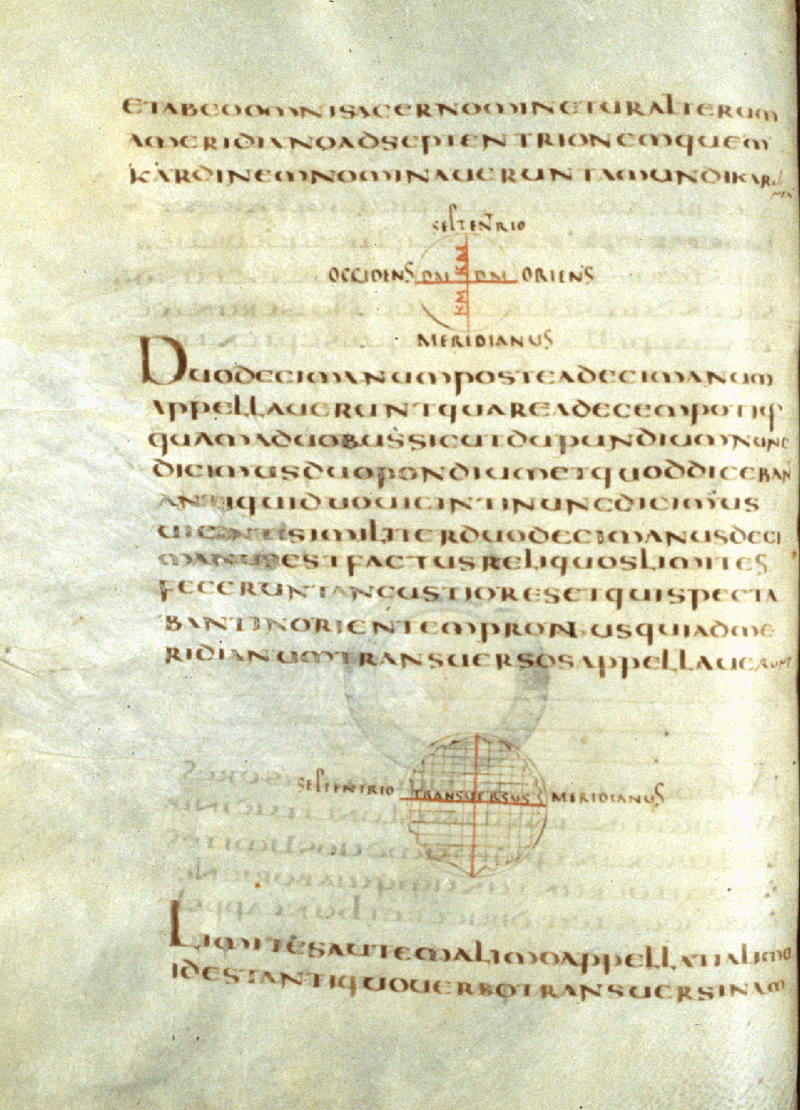 ETABEOOMNISAGERNOMINETURALTERUM
AMERIDIANOADSEPTENTRIONEMQUEM
KARDINEMNOMINAUERUNTAMUNDIKAR
SEPTENTRIO
OCCIDENS DM KM DM ORIENS
KM
MERIDIANUS
DUODECIMANUMPOSTEADECIMANUM
APPELLAUERUNTQUAREADECEMPOTIUS
QUAMADUOBUSSICUTDUPUNDIUMNUNC
DICIMUSDUOPONDIUMETQUODDICEBAN
ANTIQUIDUOUIGINTINUNCDICIMUS
UIGINTISIMILITERDUODECIMANUSDECI
MANUSESTFACTUSRELIQUOSLIMITES
FECERUNTANGUSTIORESETQUISPECTA
BANTINORIENTEMPRORSUSQUIADME
RIDIANUMTRANSUERSOSAPPELLAUERUNT
SEPTENTRIO TRANSUERSUS MERIDIANUS
LIMITESAUTEMALIMOAPPELLATIALIMO
IDESTANTIQUOUERBOTRANSUERSINAM